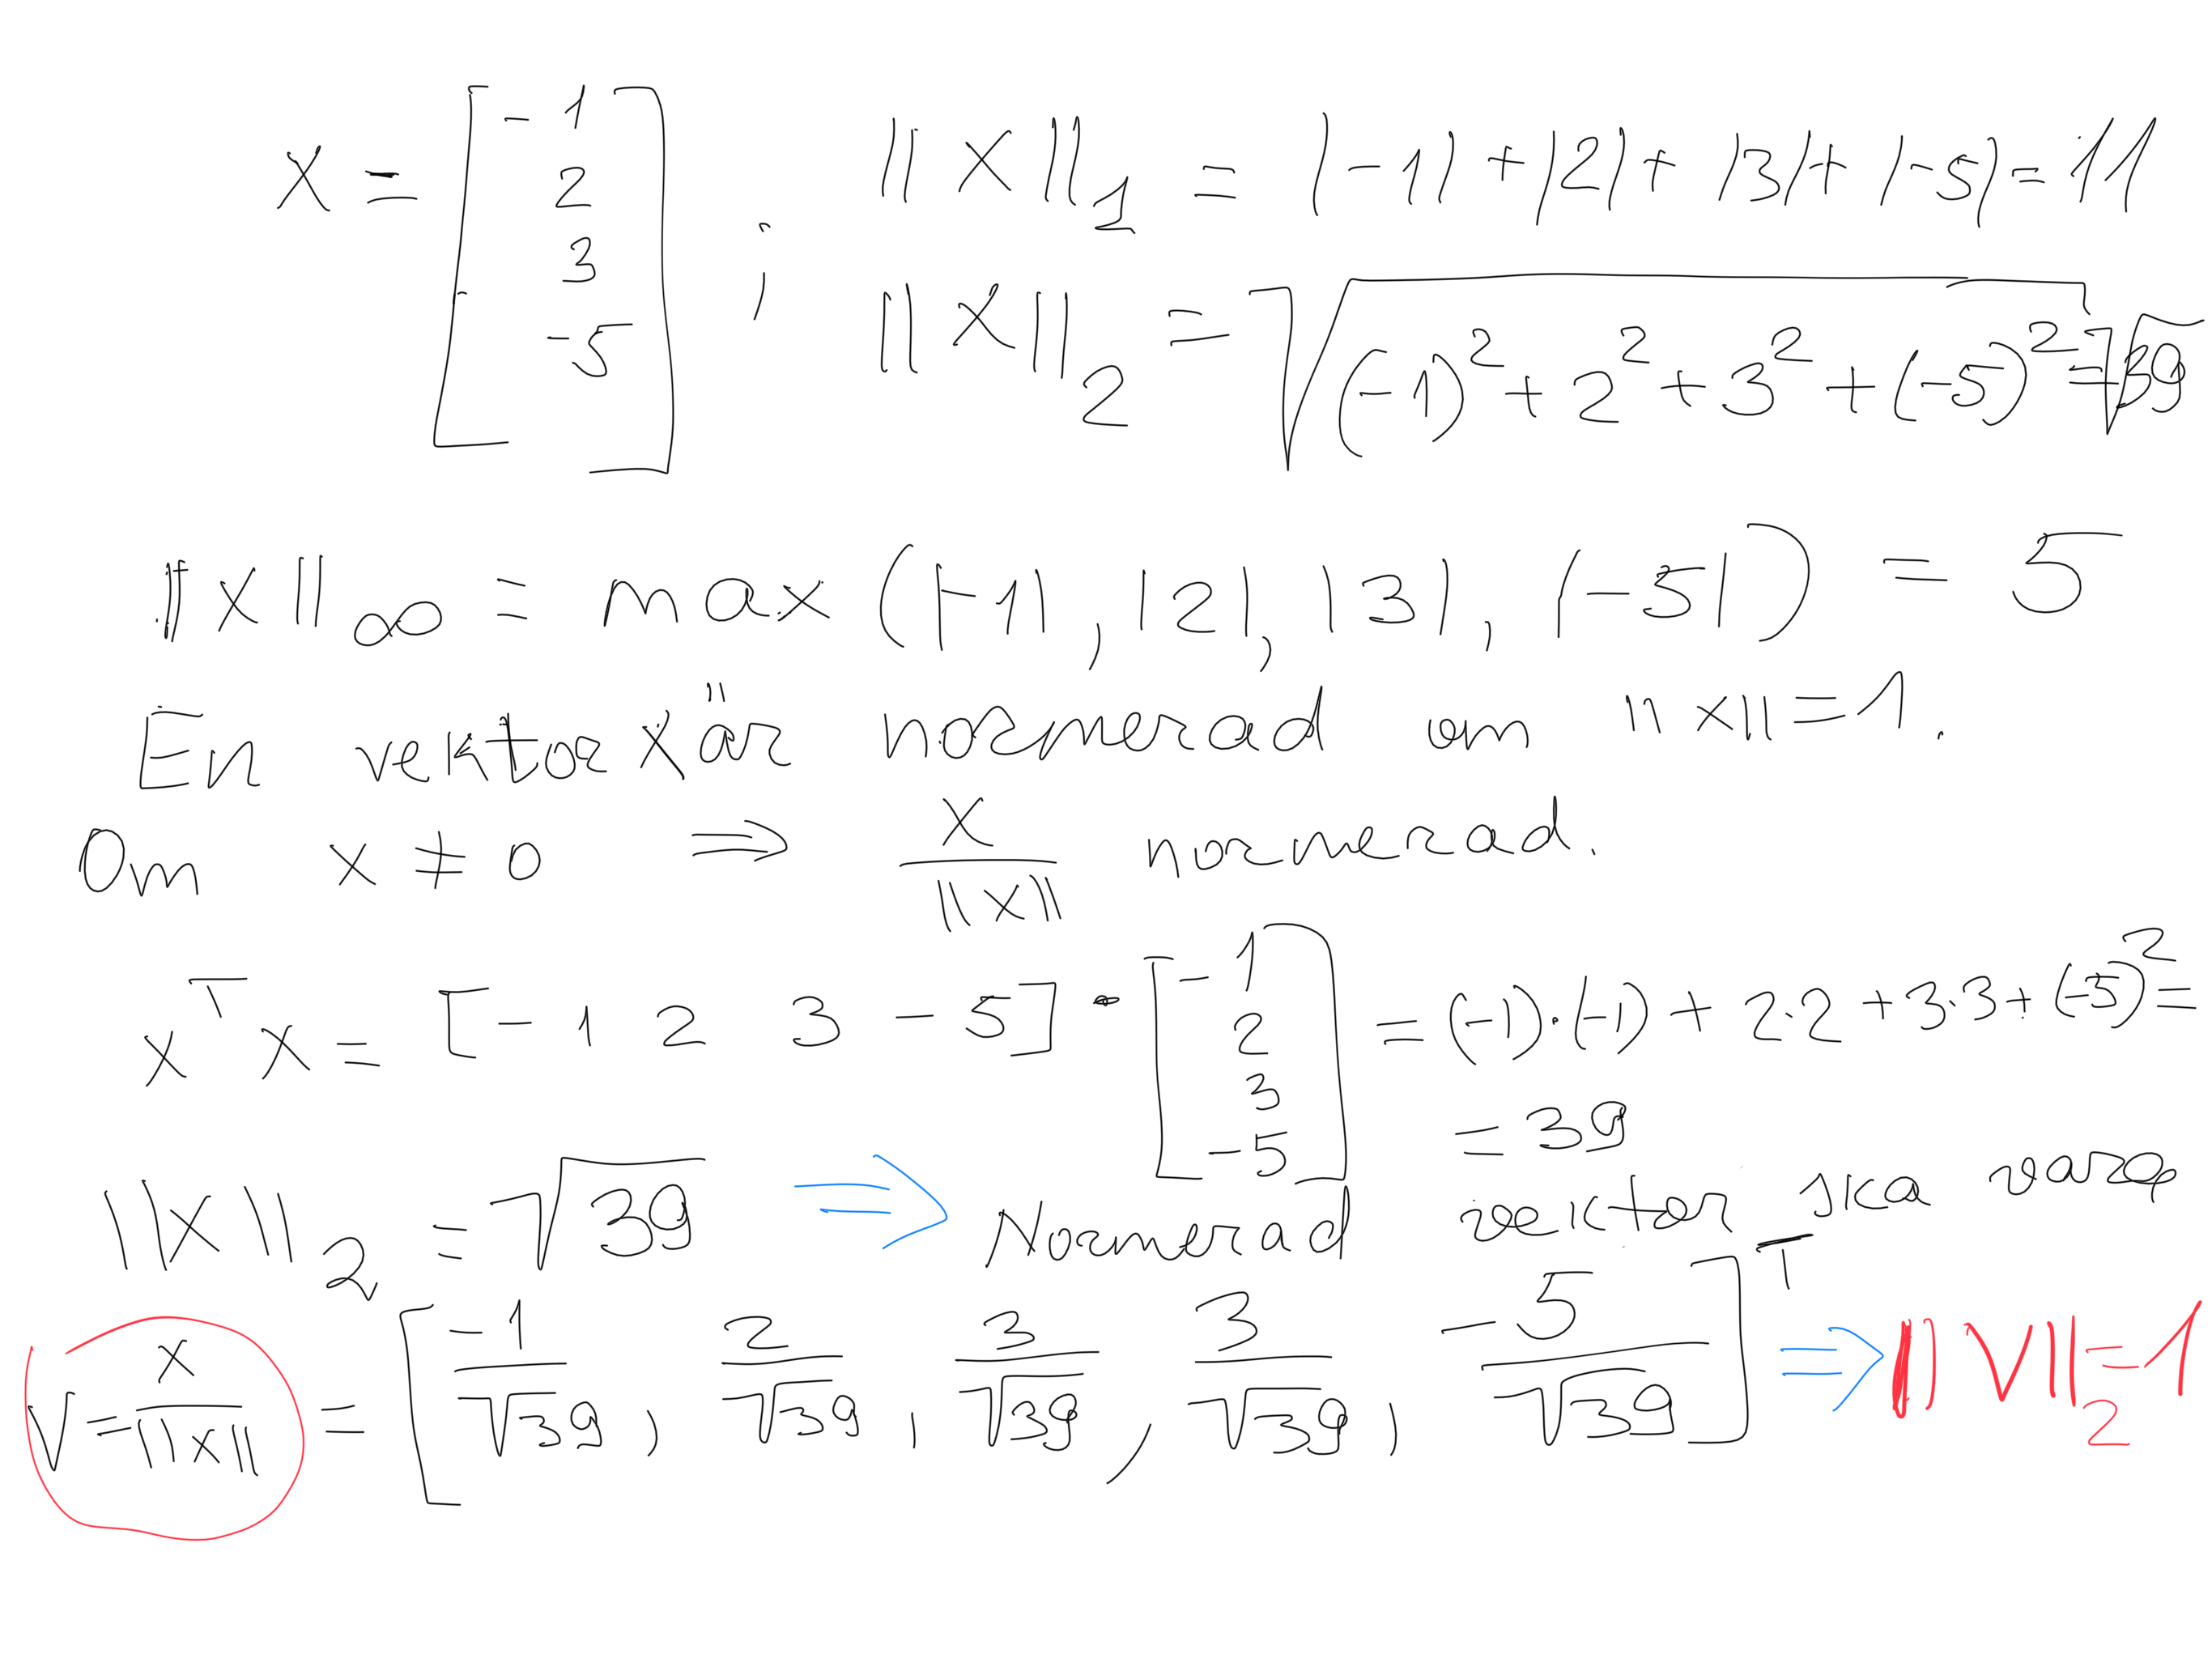 x = [-1 2 3 -5] ; ||x||₁ = |-1| + |2| + |3| + |-5| = 11
||x||₂ = √((-1)² + 2² + 3² + (-5)²) = √39
||x||∞ = max (|-1|, |2|, |3|, |-5|) = 5
En vektor x är normerad om ||x|| = 1.
Om x ≠ 0 ⇒ x/||x|| normerad.
xᵀx = [-1 2 3 -5] · [-1 2 3 -5] = (-1)·(-1) + 2·2 + 3·3 + (-5)² =
= 39
||x||₂ = √39 ⇒ Normerad vektor ska vara
v = x/||x|| = [-1/√39, 2/√39, 3/√39, 3/√39, -5/√39]ᵀ ⇒ ||v||₂ = 1